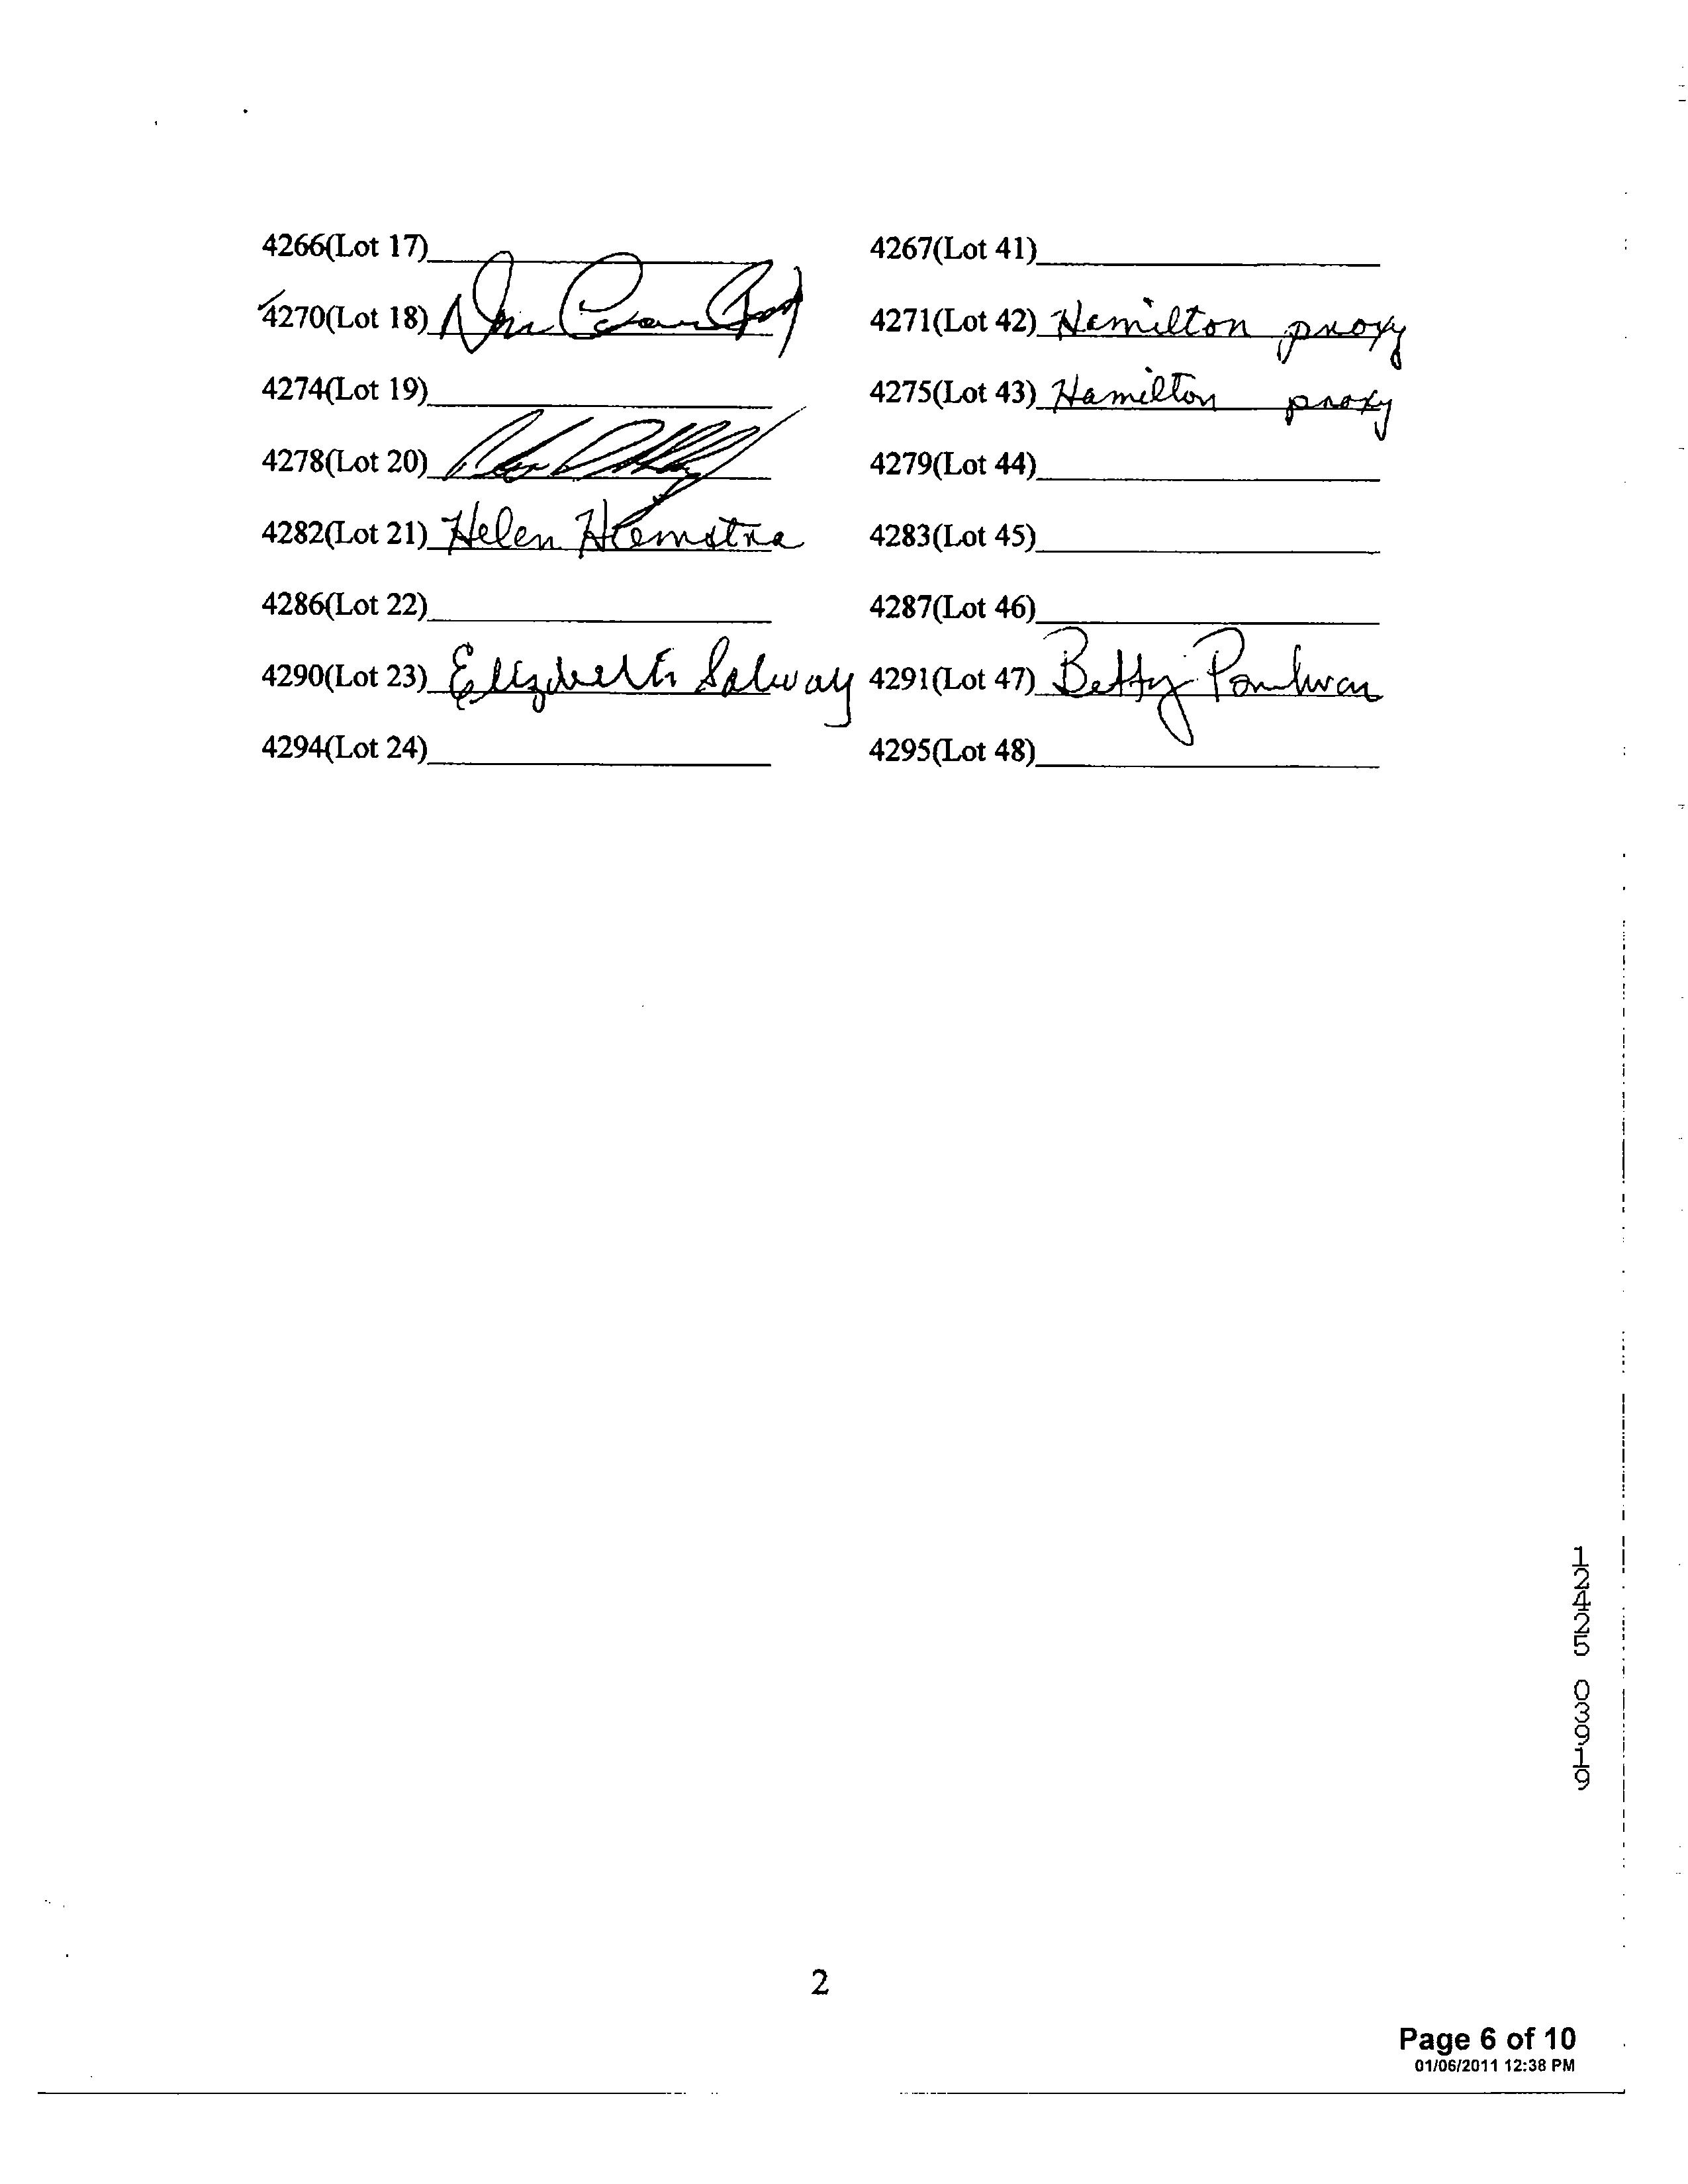 4266(Lot 17) 4267(Lot 41)
4270(Lot 18) 4271(Lot 42) Hamilton proxy
4274(Lot 19) 4275(Lot 43) Hamilton proxy
4278(Lot 20) 4279(Lot 44)
4282(Lot 21) Helen Hiemstra 4283(Lot 45)
4286(Lot 22) 4287(Lot 46)
4290(Lot 23) Elizabeth Salway 4291(Lot 47) Betty
4294(Lot 24) 4295(Lot 48)
12425 03919
2
Page 6 of 10
01/06/2011 12:38 PM